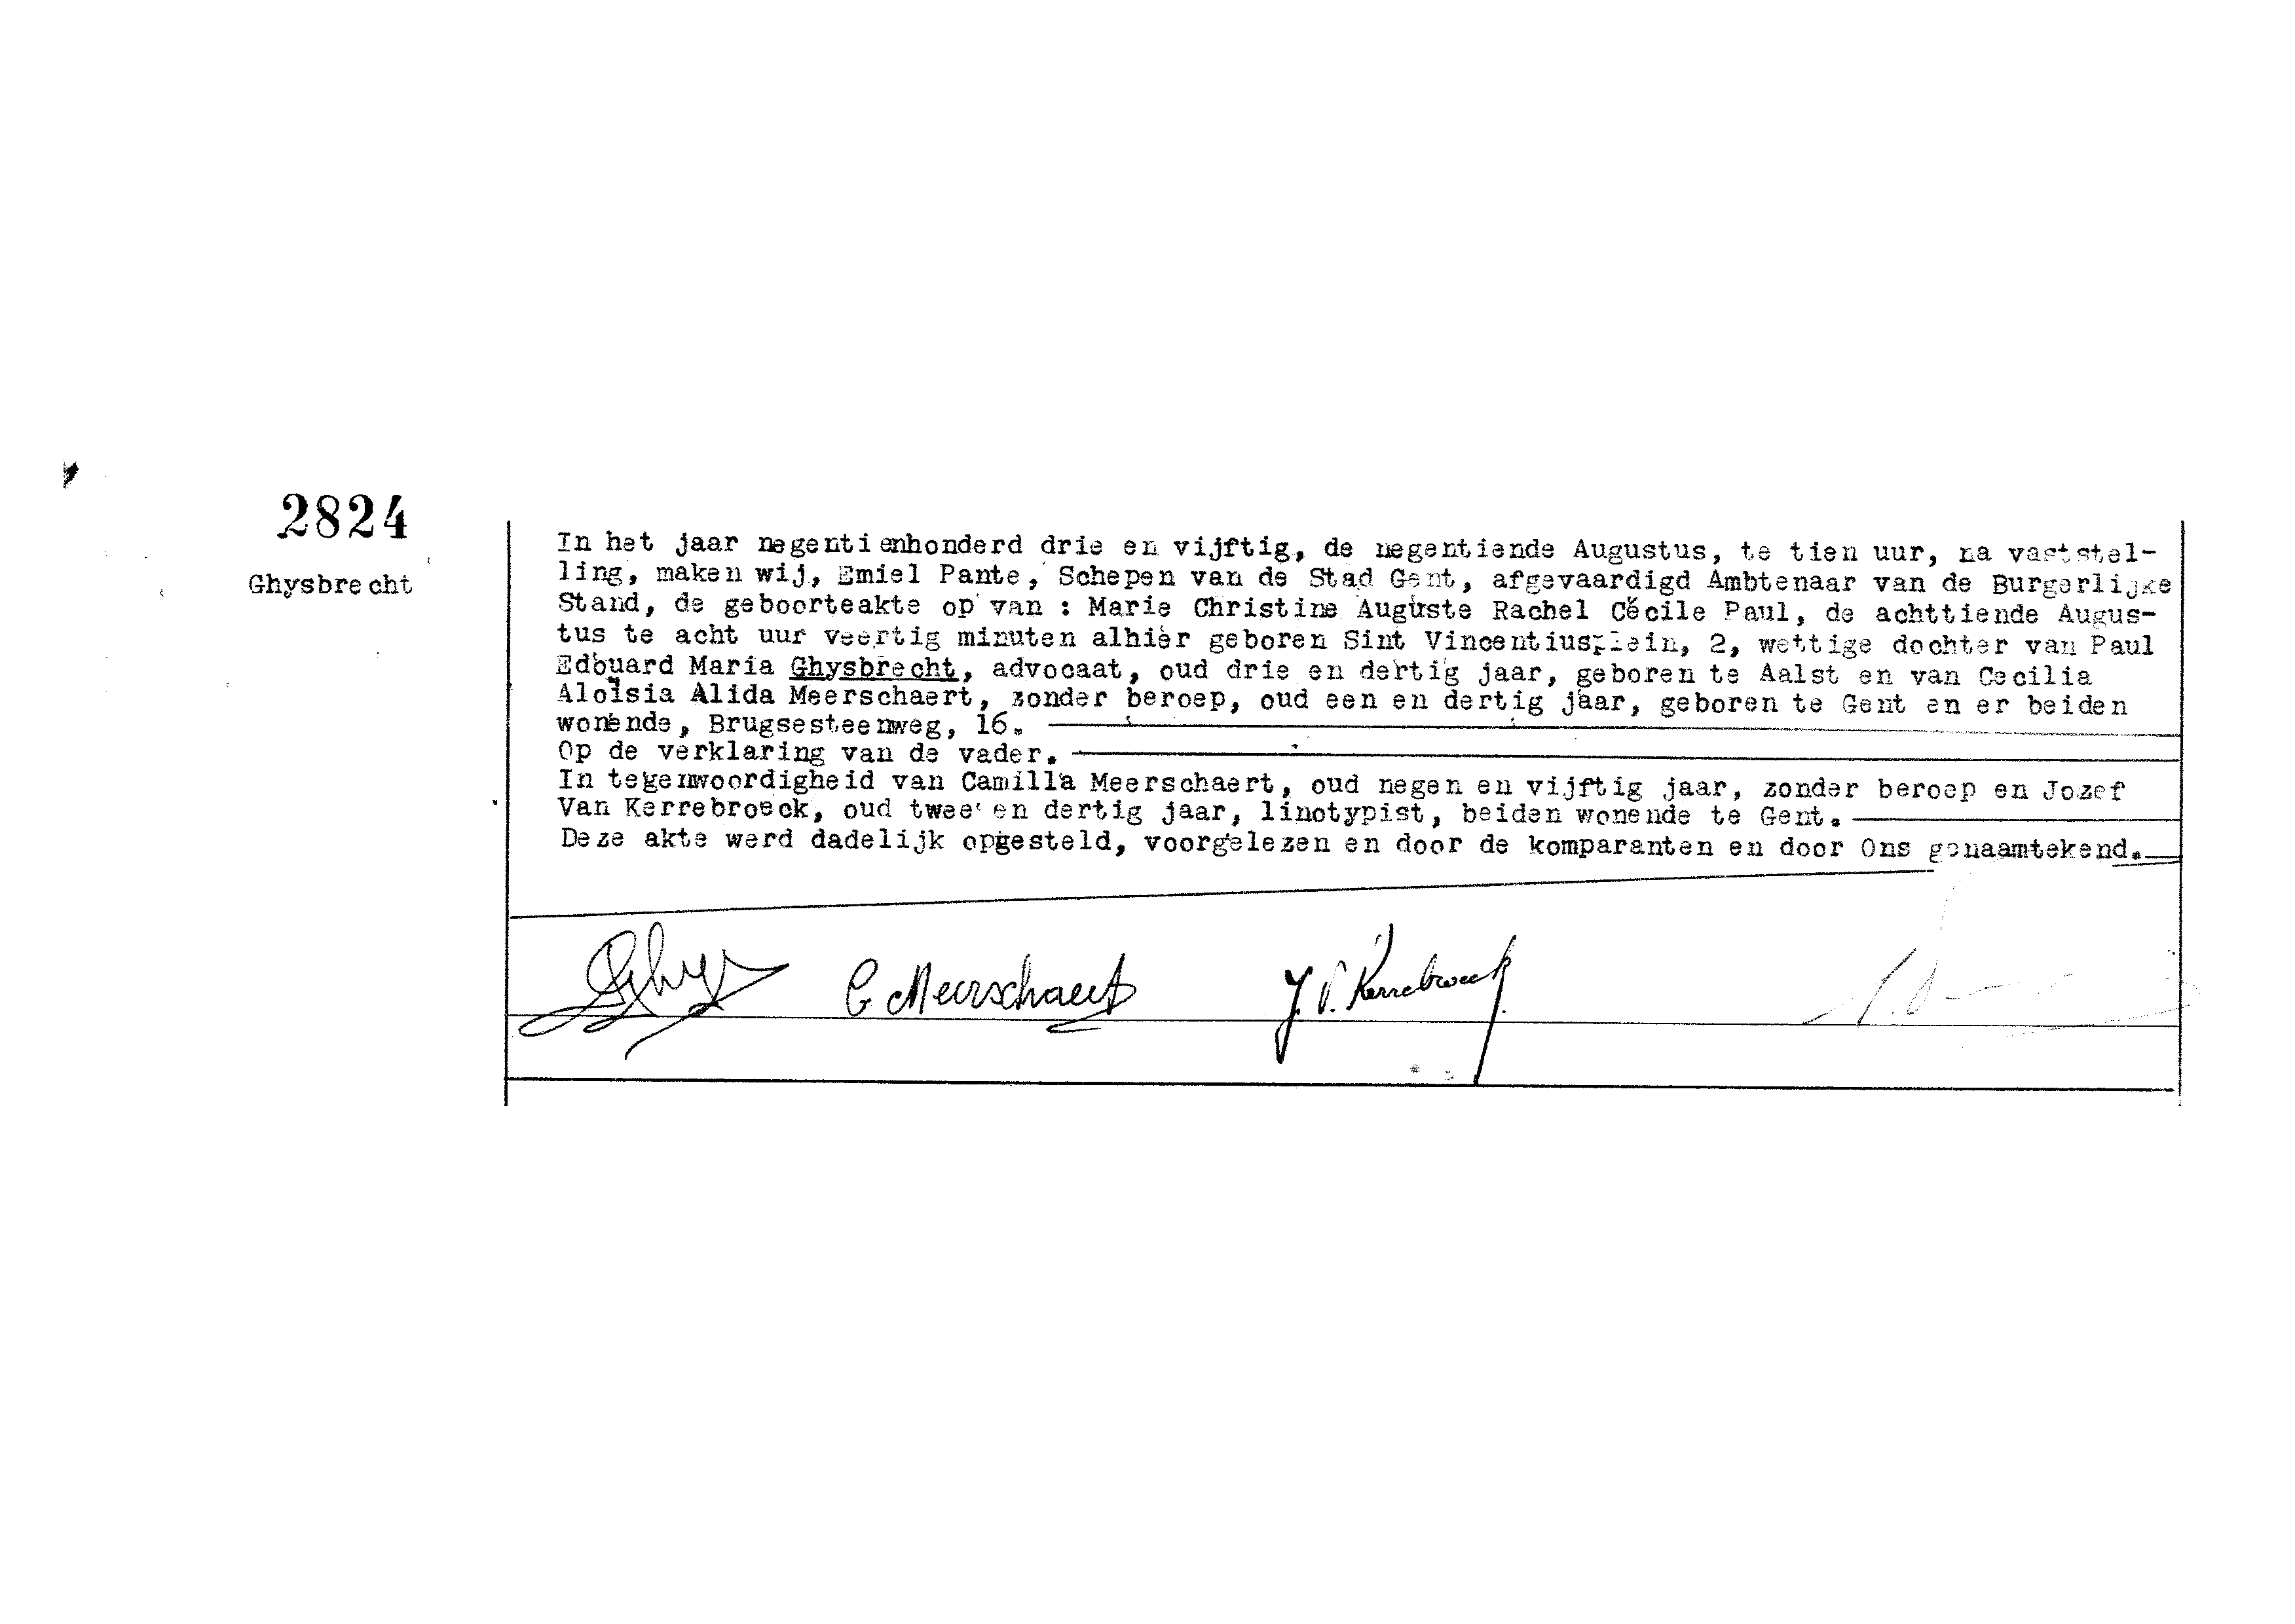 2824
Ghysbrecht
In het jaar negentienhonderd drie en vijftig, de negentiende Augustus, te tien uur, na vaststel-
ling, maken wij, Emiel Pante, Schepen van de Stad Gent, afgevaardigd Ambtenaar van de Burgerlijke
Stand, de geboorteakte op van : Marie Christine Auguste Rachel Cécile Paul, de achttiende Augus-
tus te acht uur veertig minuten alhier geboren Sint Vincentiusplein, 2, wettige dochter van Paul
Edouard Maria Ghysbrecht, advocaat, oud drie en dertig jaar, geboren te Aalst en van Cecilia
Aloïsia Alida Meerschaert, zonder beroep, oud een en dertig jaar, geboren te Gent en er beiden
wonende, Brugsesteenweg, 16.
Op de verklaring van de vader.
In tegenwoordigheid van Camilla Meerschaert, oud negen en vijftig jaar, zonder beroep en Jozef
Van Kerrebroeck, oud twee en dertig jaar, linotypist, beiden wonende te Gent.
Deze akte werd dadelijk opgesteld, voorgelezen en door de komparanten en door Ons genaamtekend.
Ghys C Meerschaert J. V. Kerrebroeck